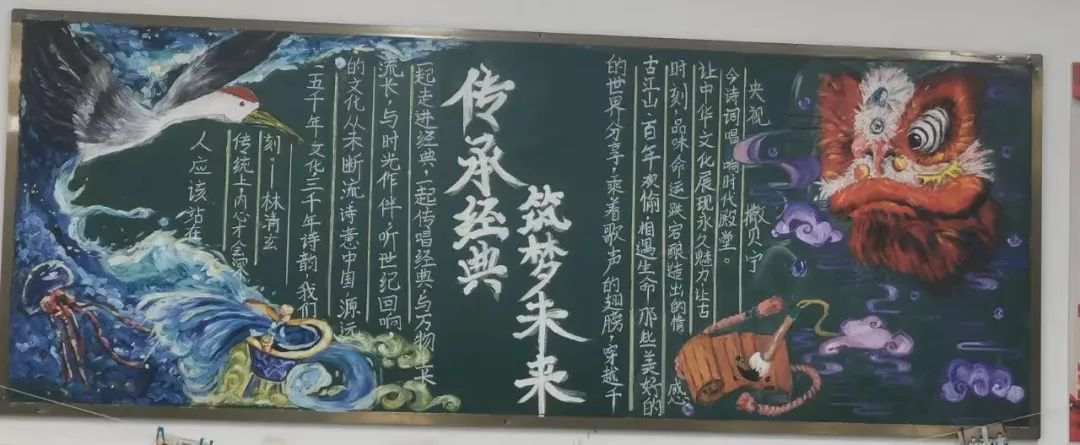 传承经典
筑梦未来
人应该站在
传统上内心才会深
刻—林清玄
五千年文化三千年诗韵,我们
的文化从未断流,诗意中国源远
流长,与时光作伴,听世纪回响
一起走进经典,一起传唱经典,与万物 长
的世界分享,乘着歌声的翅膀,穿越千
古江山·百年 相遇生命那些美好的
时刻,品味命运跌宕酿造出的情感
让中华文化展现永久魅力,让古
今诗词唱响时代殿堂。
央视 撒贝宁